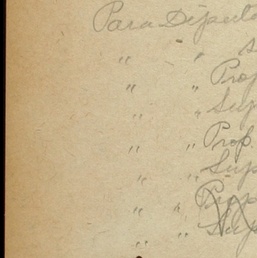 Para Diputo
" " s
" " Prop
" " Sup
" " Prop.
" " Sup
" " Prop
" " Sup